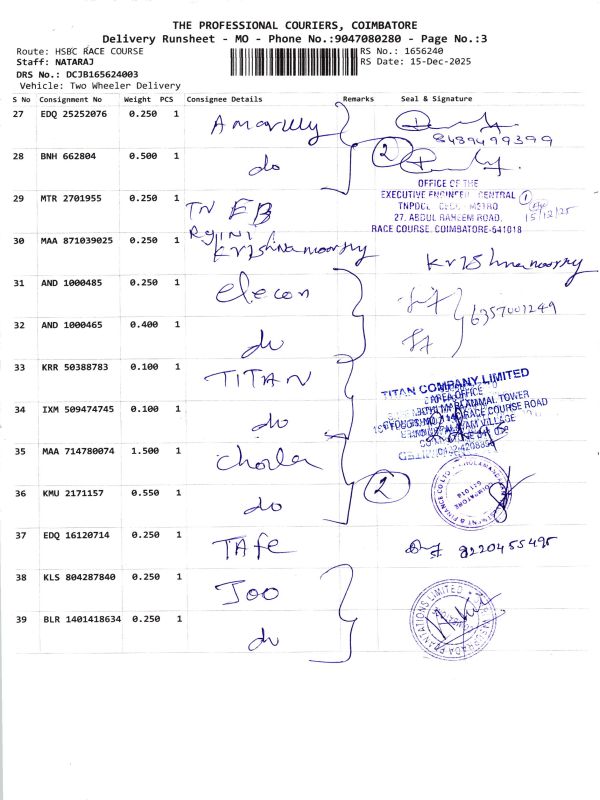 THE PROFESSIONAL COURIERS, COIMBATORE
Delivery Runsheet - MO - Phone No.:9047080280 - Page No.:3
Route: HSBC RACE COURSE
RS No.: 1656240
Staff: NATARAJ
RS Date: 15-Dec-2025
DRS No.: DCJB165624003
Vehicle: Two Wheeler Delivery
S No Consignment No Weight PCS Consignee Details Remarks Seal & Signature
27 EDQ 25252076 0.250 1
8489499399
28 BNH 662804 0.500 1 do 2
29 MTR 2701955 0.250 1 TN EB
OFFICE OF THE
EXECUTIVE ENGINEER CENTRAL
METRO
27. ABDUL RAHEEM ROAD,
RACE COURSE, COIMBATORE-641018
15/12/25
30 MAA 871039025 0.250 1 Krishnamoorthy
Krishnamoorthy
31 AND 1000485 0.250 1 elecon
6357001249
32 AND 1000465 0.400 1 do
33 KRR 50388783 0.100 1 TITAN
TITAN COMPANY LIMITED
AREA OFFICE
34 IXM 509474745 0.100 1 do
35 MAA 714780074 1.500 1 Chola
36 KMU 2171157 0.550 1 do 2
37 EDQ 16120714 0.250 1 TAfe 8220455495
38 KLS 804287840 0.250 1 Joo
39 BLR 1401418634 0.250 1 do
PLANTATIONS LIMITED